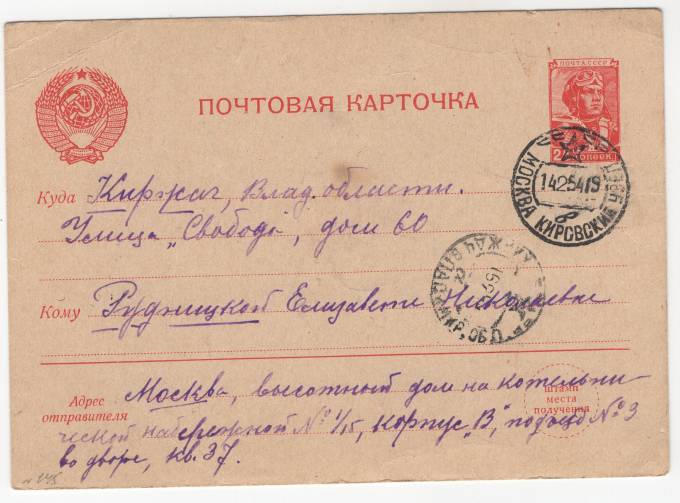 ПОЧТА СССР
ПОЧТОВАЯ КАРТОЧКА
МОСКВА КИРОВСКИЙ
Куда Киржач, Влад. области.
Улица „Свобода", дом 60
КИРЖАЧ ВЛАДИМИР. ОБЛ
Кому Рудницкой Елизавете Николаевне
Адрес отправителя
Москва, высотный дом на котельни-
ческой набережной № 1/15, корпус „В", подъезд № 3
во дворе, кв. 37.
штамп
места
получения